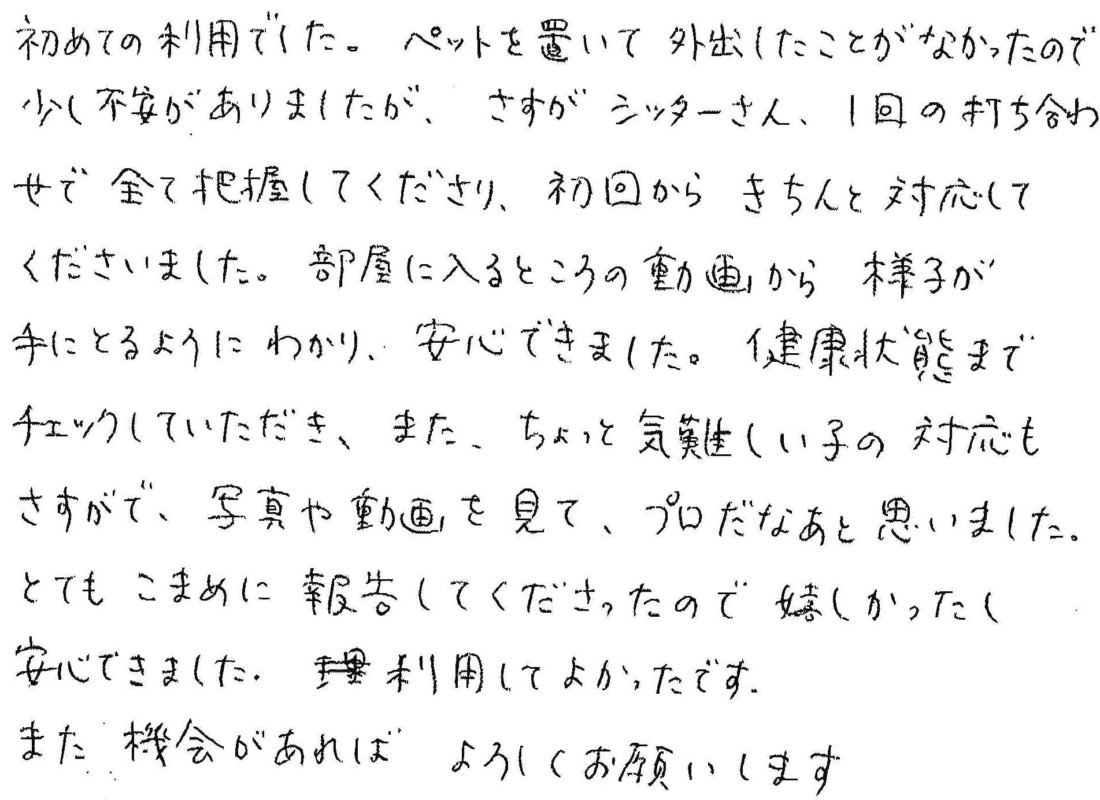 初めての利用でした。ペットを置いて外出したことがなかったので
少し不安がありましたが、さすがシッターさん、1回の打ち合わ
せで全て把握してくださり、初回からきちんと対応して
くださいました。部屋に入るところの動画から様子が
手にとるようにわかり、安心できました。健康状態まで
チェックしていただき、また、ちょっと気難しい子の対応も
さすがで、写真や動画を見て、プロだなあと思いました。
とてもこまめに報告してくださったので嬉しかったし
安心できました。利用してよかったです。
また機会があればよろしくお願いします